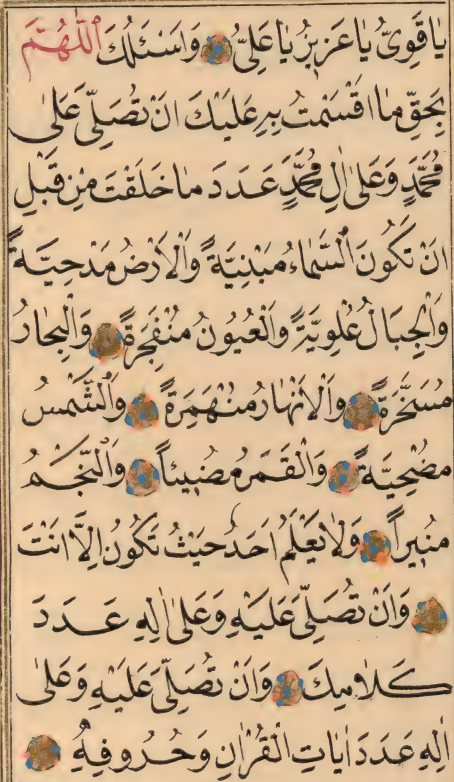 يَا قَوِىُّ يَا عَزِيزُ يَا عَلِىُّ وَاَسْئَلُكَ اَللّٰهُمَّ
بِحَقِّ مَا اَقْسَمْتُ بِهِ عَلَيْكَ اَنْ تُصَلِّىَ عَلٰى
مُحَمَّدٍ وَعَلٰى اٰلِ مُحَمَّدٍ عَدَدَ مَا خَلَقْتَ مِنْ قَبْلِ
اَنْ تَكُونَ السَّمَاءُ مَبْنِيَّةً وَالْاَرْضُ مَدْحِيَّةً
وَالْجِبَالُ عُلْوِيَّةً وَالْعُيُونُ مُنْفَجِرَةً وَالْبِحَارُ
مُسَخَّرَةً وَالْاَنْهَارُ مُنْهَمِرَةً وَالشَّمْسُ
مُضْحِيَّةً وَالْقَمَرُ مُضِيئاً وَالنَّجْمُ
مُنِيراً وَلَا يَعْلَمُ اَحَدٌ حَيْثُ تَكُونُ اِلَّا اَنْتَ
وَاَنْ تُصَلِّىَ عَلَيْهِ وَعَلٰى اٰلِهِ عَدَدَ
كَلَامِكَ وَاَنْ تُصَلِّىَ عَلَيْهِ وَعَلٰى
اٰلِهِ عَدَدَ اٰيَاتِ الْقُرْاٰنِ وَحُرُوفِهِ